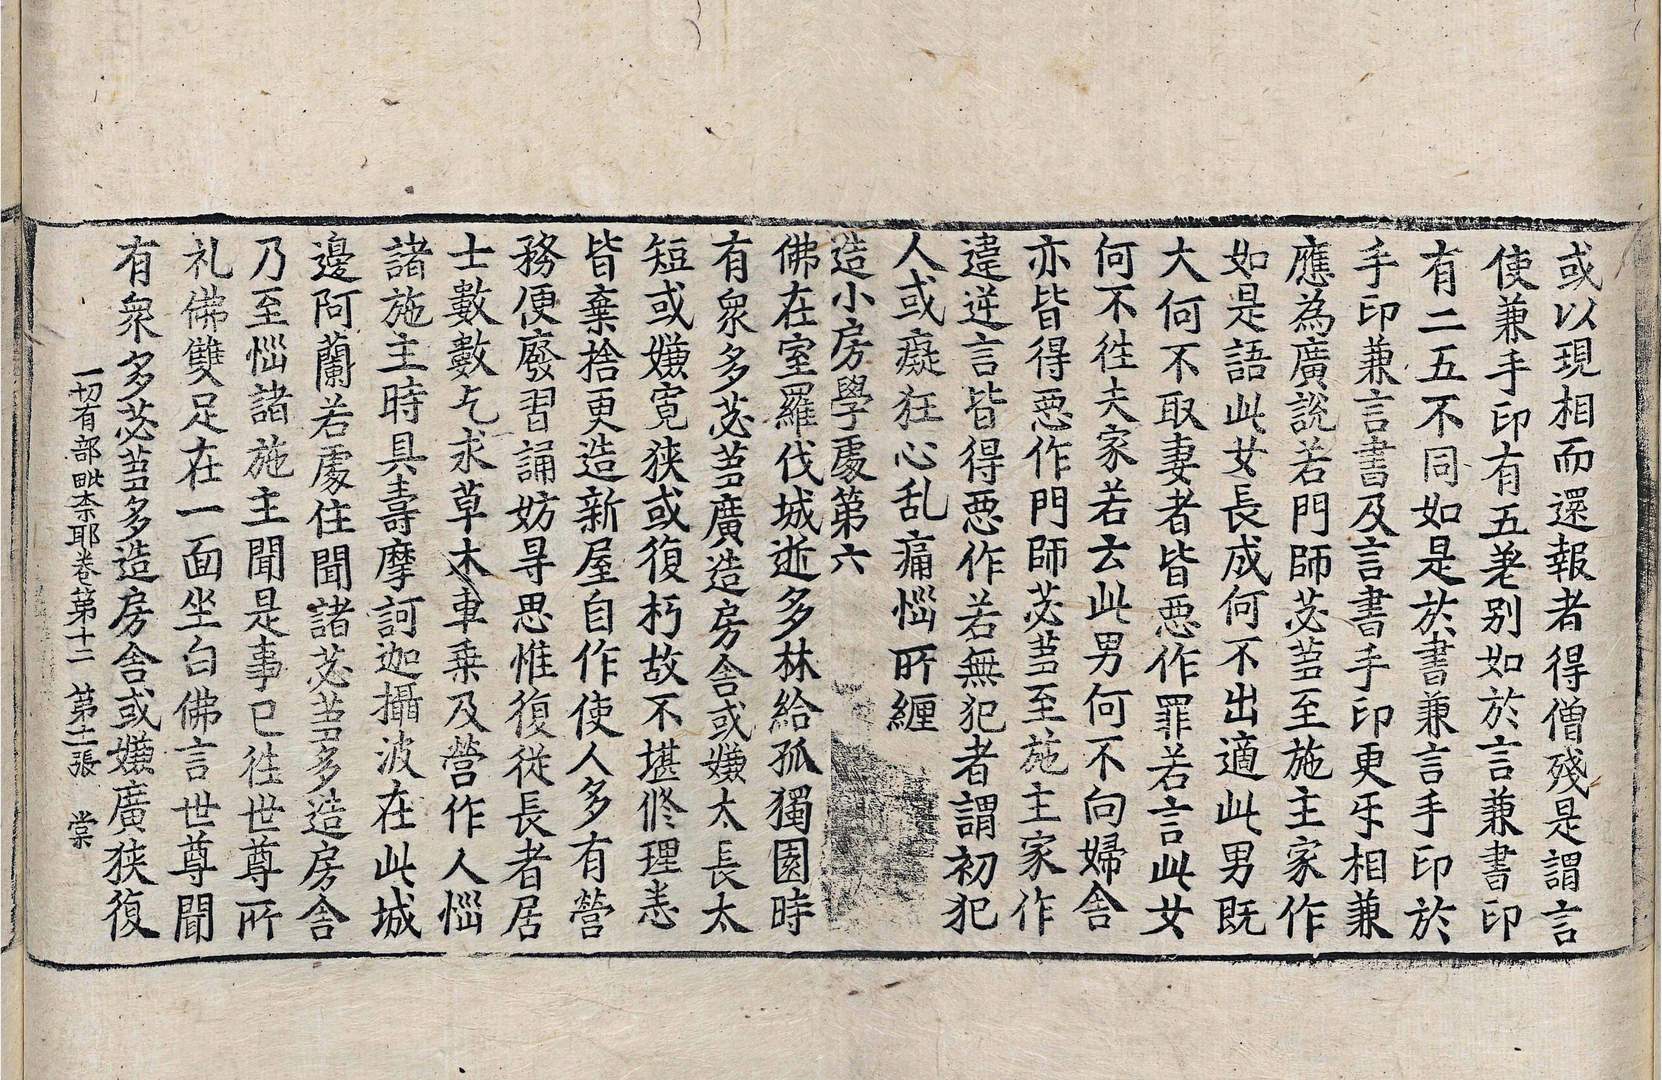 或以現相而還報者得僧殘是謂言
使兼手印有五差別如於言兼書印
有二五不同如是於書兼言手印於
手印兼言書及言書手印更牙相兼
應為廣說若門師苾芻至施主家作
如是語此女長成何不出適此男既
大何不取妻者皆惡作罪若言此女
何不往夫家若去此男何不向婦舍
亦皆得惡作門師苾芻至施主家作
違逆言皆得惡作若無犯者謂初犯
人或癡狂心乱痛惱所纏
造小房學處第六
佛在室羅伐城逝多林給孤獨園時
有衆多苾芻廣造房舍或嫌太長太
短或嫌寬狹或復朽故不堪修理悉
皆棄捨更造新屋自作使人多有營
務便廢習誦妨㝵思惟復從長者居
士數數乞求草木車乗及營作人惱
諸施主時具壽摩訶迦攝波在此城
邊阿蘭若處住聞諸苾芻多造房舍
乃至惱諸施主聞是事已往世尊所
礼佛雙足在一面坐白佛言世尊聞
有衆多苾芻多造房舍或嫌廣狹復
一切有部毗柰耶卷第十二　第十二張　棠